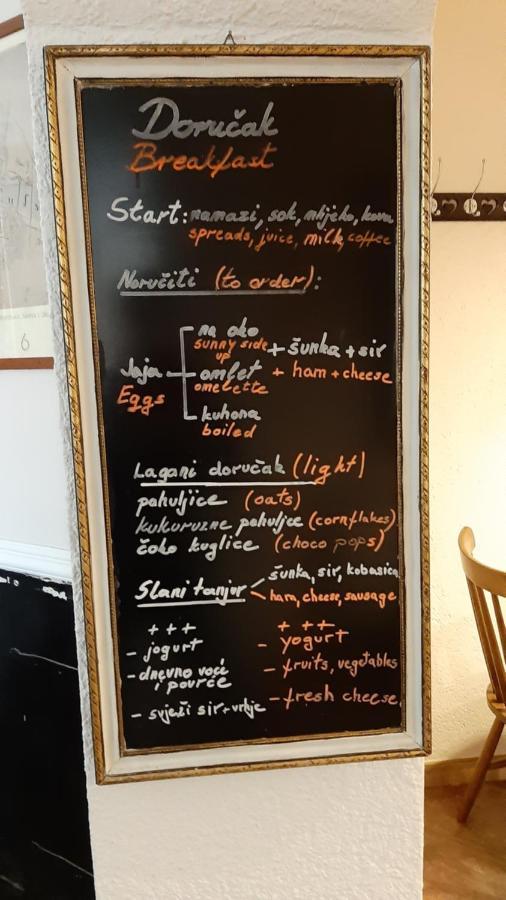 Doručak
Breakfast
Start: namazi, sok, mlijeko, kava
spreads, juice, milk, coffee
Naručiti (to order):
Jaja
Eggs
na oko
sunny side
up
omlet
omelette
kuhana
boiled
+ šunka + sir
+ ham + cheese
Lagani doručak (light)
pahuljice (oats)
kukuruzne pahuljice (cornflakes)
čoko kuglice (choco pops)
Slani tanjur
šunka, sir, kobasica
ham, cheese, sausage
+ + +
- jogurt
- dnevno voće
i povrće
- svježi sir + vrhje
+ + +
- yogurt
- fruits, vegetables
- fresh cheese
6